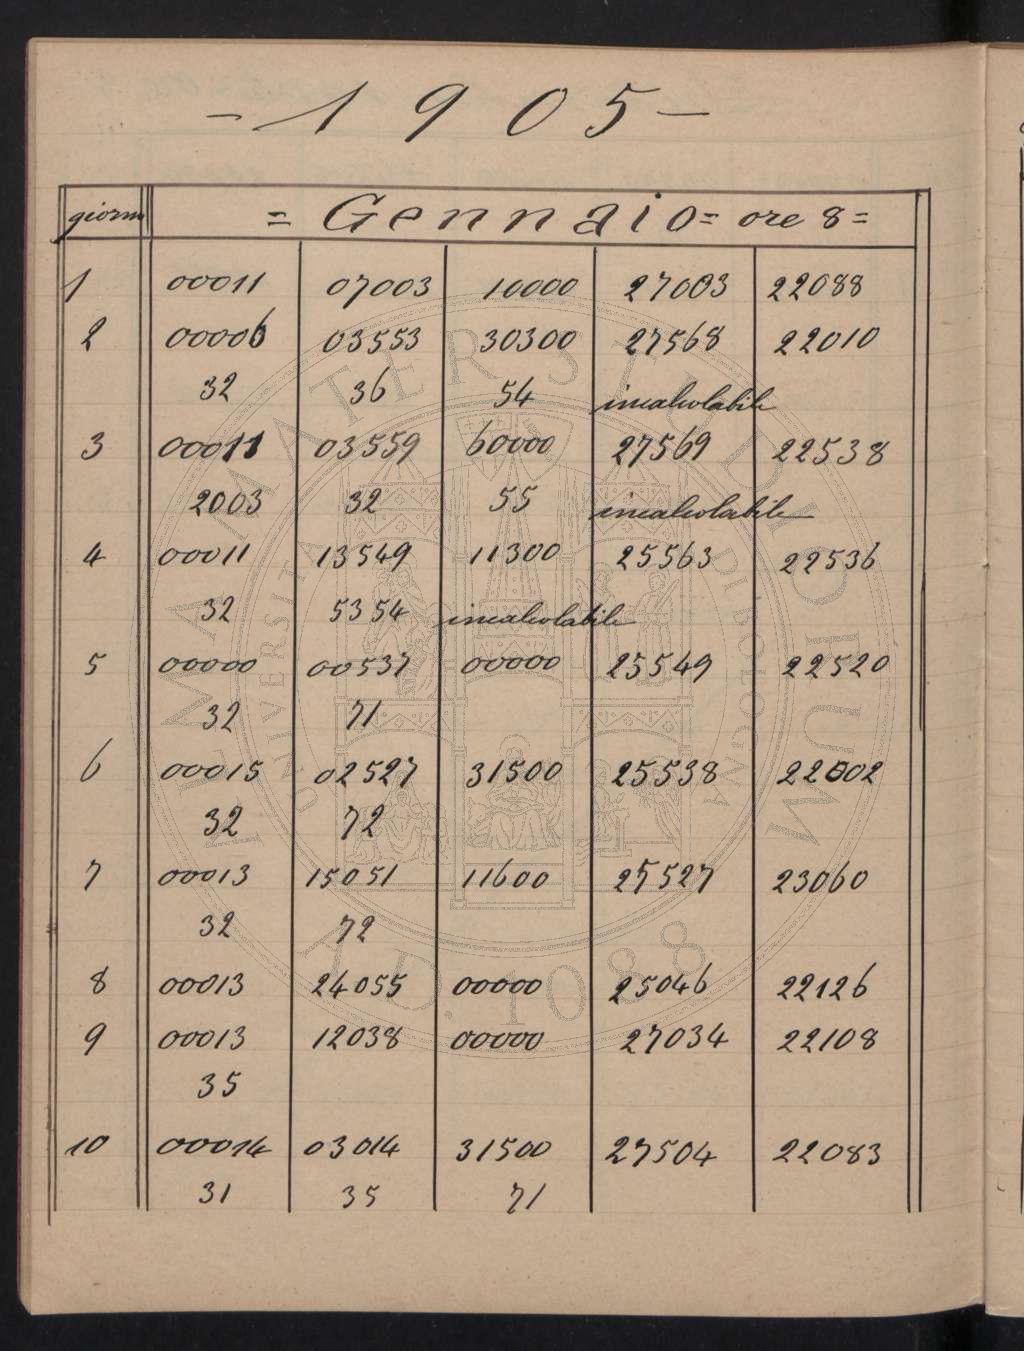 - 1905 -
giorni = Gennaio = ore 8 =
1 00011 07003 10000 27003 22088
2 00006 03553 30300 27568 22010
32 36 54 incalcolabile
3 00011 03559 60000 27569 22538
2003 32 55 incalcolabile
4 00011 13549 11300 25563 22536
32 5354 incalcolabile
5 00000 00537 00000 25549 22520
32 71
6 00015 02527 31500 25538 22002
32 72
7 00013 15051 11600 25527 23060
32 72
8 00013 24055 00000 25046 22126
9 00013 12038 00000 27034 22108
35
10 00014 03014 31500 27504 22083
31 35 71
ALMA MATER STUDIORUM
A.D. 1088